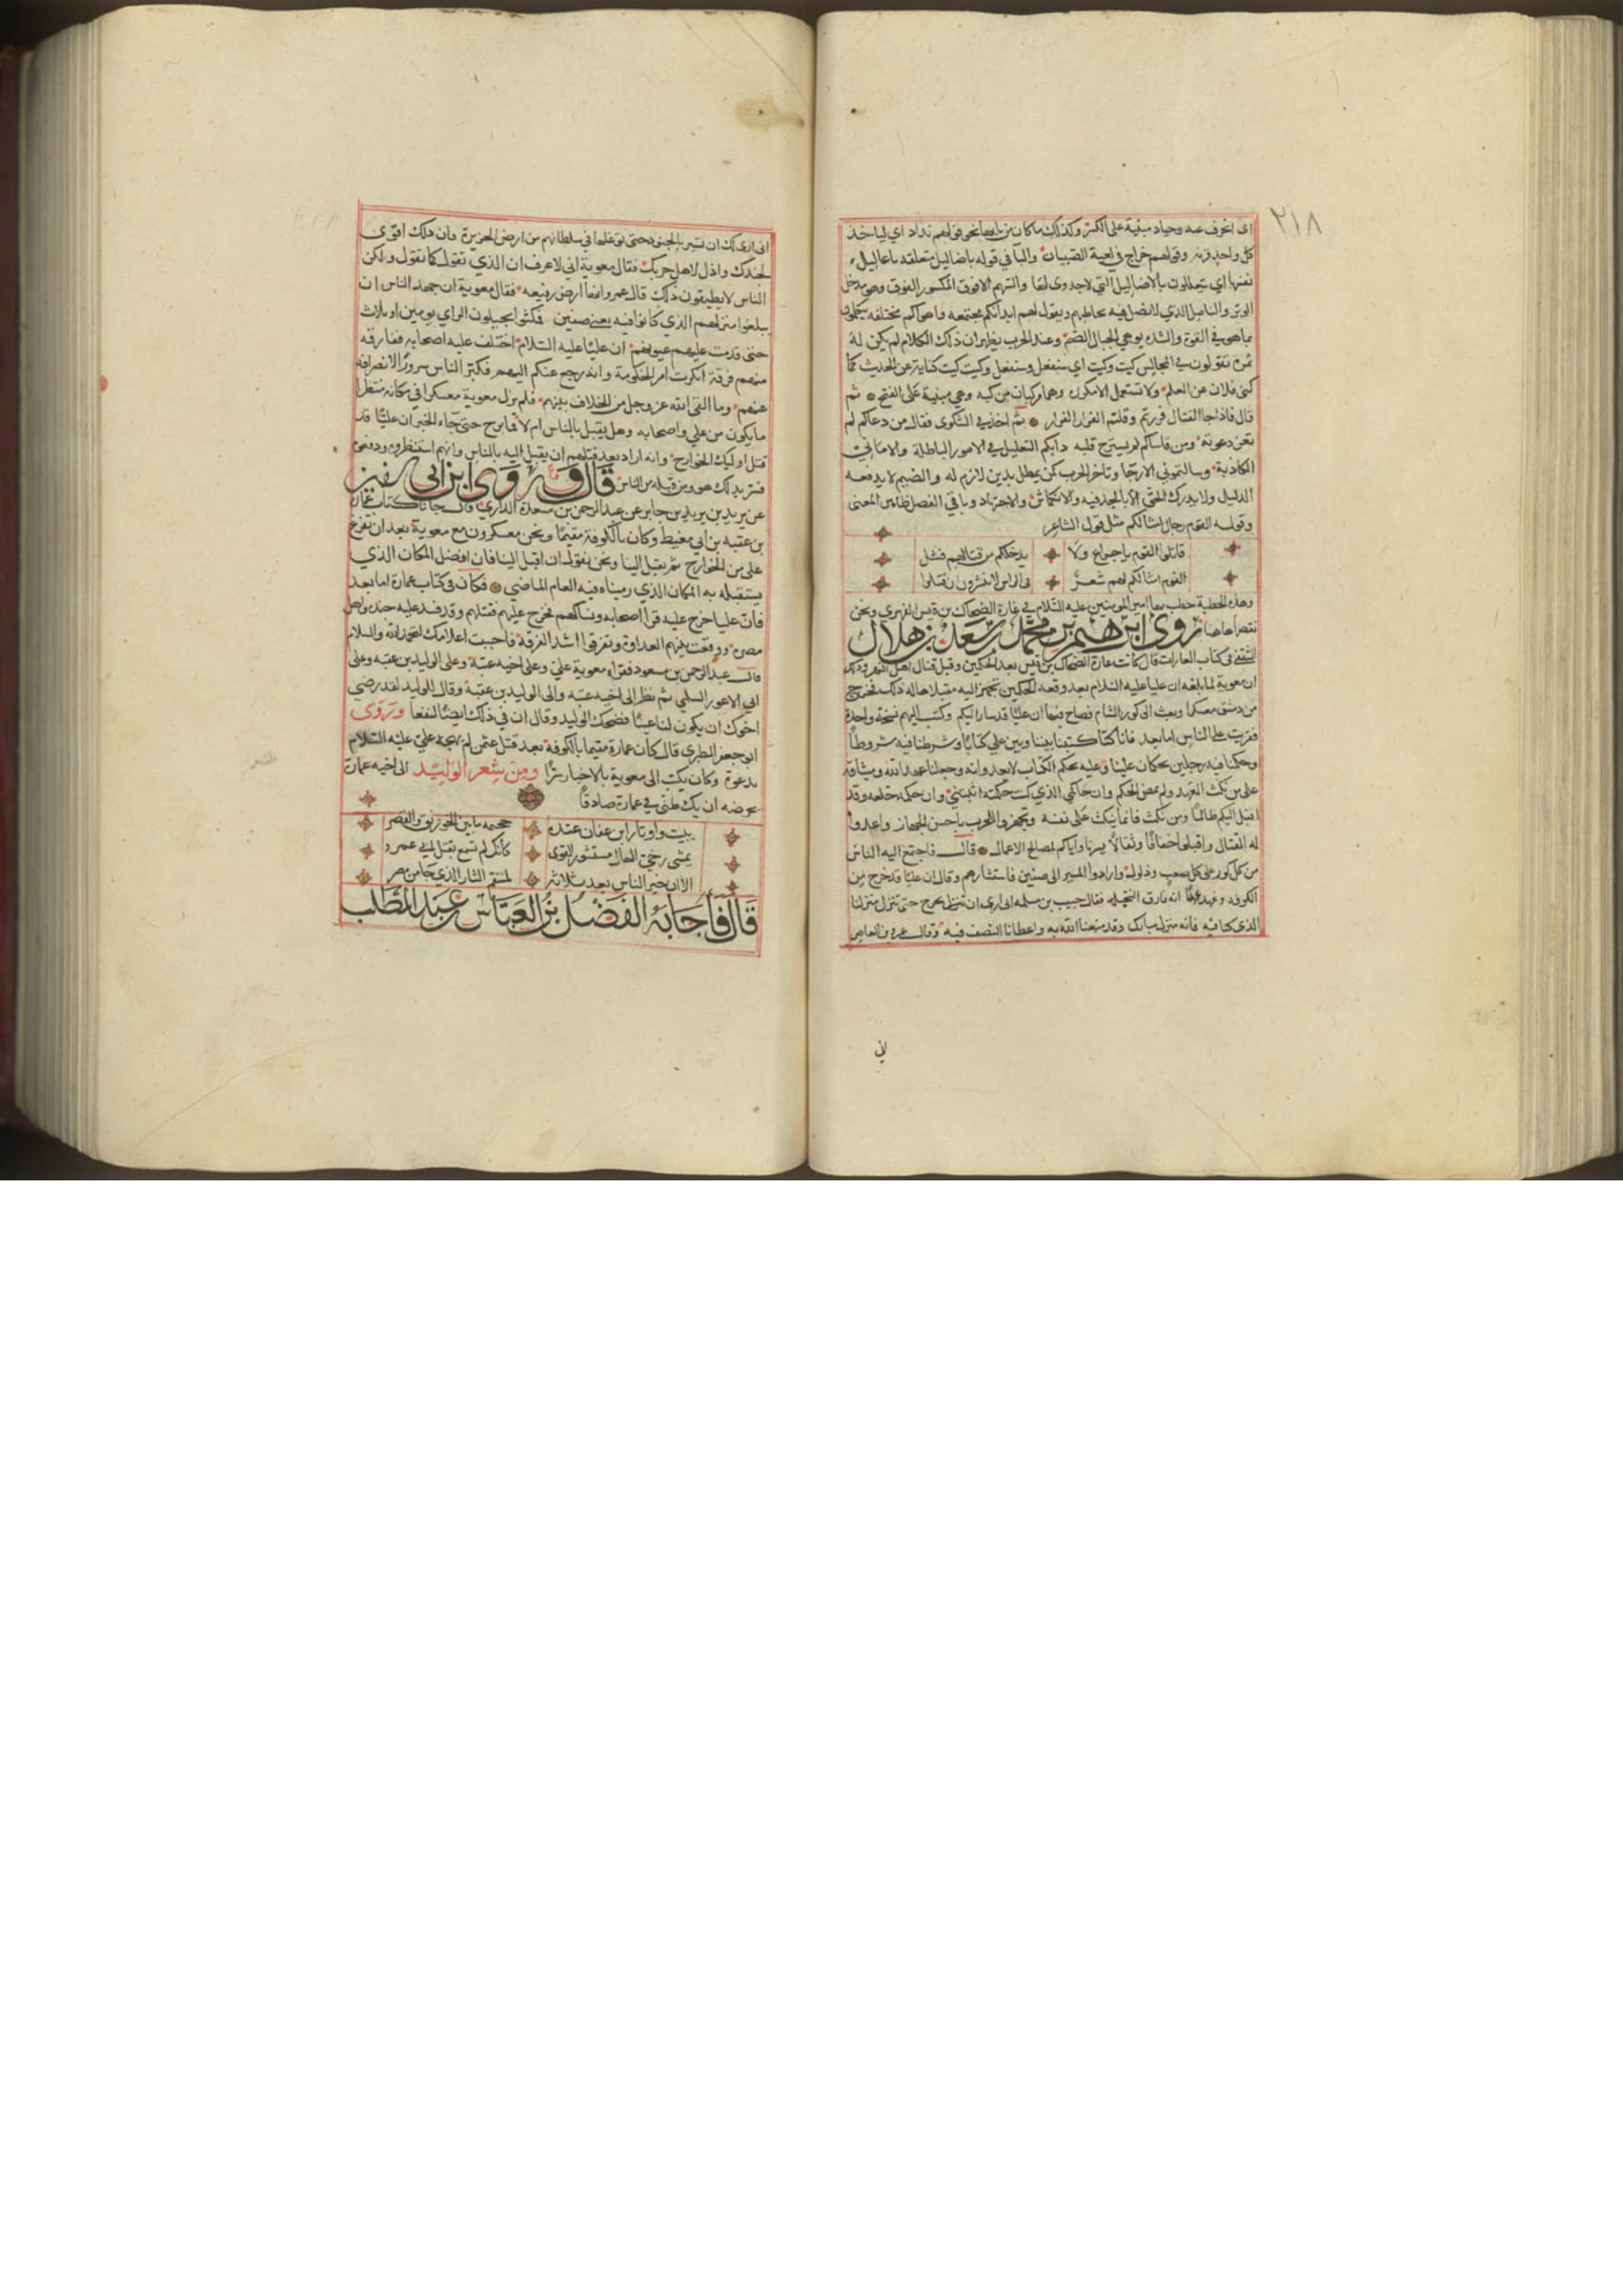 ٢١٨
اى انحرف عنه وحياد مبنية على الكسر وكذلك ما كان من بابها نحو قولهم بداد اي ليأخذ
كل واحد قرنه وقولهم خراج في لعبة الصبيان والبآ في قوله باضاليل متعلقة باعاليل
نفسها اي يتعللون بالاضاليل التي لا جدوى لها والسهم الافوق المكسور الفوق وهو مدخل
الوتر والناصل الذي لا نصل فيه يخاطبهم ويقول لهم ابدانكم مجتمعه واهواكم مختلفه
ما هو في القوة والشده يوهي الجبال الصم وعند الحرب يظهر ان ذلك الكلام لم يكن له
ثمرة تقولون في المجالس كيت وكيت اي سنفعل وسنفعل وكيت كيت كناية عن الحديث كما
كنى فلان عن العلم ولا تستعمل الا مكررة وهما مركبان من كيه وهي مبنية على الفتح ثم
قال فاذا جا القتال فررتم وقلتم الفرار الفرار ثم اخذ في الشكوى فقال من دعاكم لم
تعز دعوته ومن قاساكم لم يسترح قلبه دابكم التعليل في الامور الباطلة والامانى
الكاذبة وسالتموني الارجا وتاخر الحرب كمن يمطل بدين لازم له والضيم لا يدفعه
الذليل ولا يدرك الحق الا بالجد فيه والانكماش والاجتهاد وباقي الفصل ظاهر المعنى
وقوله القوم رجال امثالكم مثل قول الشاعر
قاتلوا القوم يا خزاع ولا يدخلكم من قتالهم فشل
القوم امثالكم لهم شعر في الراس لا ينشرون ان قتلوا
وهذه الخطبة خطب بها امير المومنين عليه السلام في غارة الضحاك بن قيس الفهري ونحن
نقصها هاهنا روى ابرهيم بن محمد بن سعد بن هلال
الثقفي في كتاب الغارات قال كانت غارة الضحاك بن قيس بعد الحكمين وقبل قتال اهل النهر وذلك
ان معوية لما بلغه ان عليا عليه السلام بعد وقعة الحكمين تجهز اليه مقبلا هاله ذلك فخرج
من دمشق معسكرا وبعث الى كور الشام فصاح فيها ان عليا قد سار اليكم وكتب اليهم نسخة واحدة
فقريت على الناس اما بعد فانا كنا كتبنا بيننا وبين علي كتابا وشرطنا فيه شروطا
وحكمنا فيه رجلين يحكمان علينا وعليه بحكم الكتاب لا يعدوانه وجعلنا عهد الله وميثاقه
على من نكث العهد ولم يمض الحكم وان حكمي الذي كنت حكمته اثبتني وان حكمه خلعه وقد
اقبل اليكم ظالما ومن نكث فانما ينكث على نفسه وتجهزوا للحرب باحسن الجهاز واعدوا
له القتال واقبلوا خفافا وثقالا يسرنا واياكم لصالح الاعمال قال فاجتمع اليه الناس
من كل كور على كل صعب وذلول وارادوا المسير الى صفين فاستشارهم وقال ان عليا قد خرج من
الكوفه وعهد به انه فارق النخيله فقال حبيب بن مسلمه انى ارى ان نخرج حتى ننزل منزلنا
الذى كنا فيه فانه منزل مبارك وقد متعنا الله به واعطانا النصف فيه وقال عمرو بن العاص
اني
انى ارى لك ان تسير بالجنود حتى توغلها في سلطانهم من ارض الجزيرة فان ذلك اقوى
لجندك واذل لاهل حربك فقال معوية اني لاعرف ان الذي تقول كما تقول ولكن
الناس لا يطيقون ذلك قال عمرو انها ارض رفيعه فقال معوية ان جهد الناس ان
يبلغوا منزلهم الذي كانوا فيه يعني صفين فمكثوا يجيلون الراي يومين او ثلاث
حتى قدمت عليهم عيونهم ان عليا عليه السلام اختلف عليه اصحابه ففارقه
منهم فرقة انكرت امر الحكومة وانه رجع عنكم اليهم فكبر الناس سرورا لانصرافه
عنهم وما القى الله عز وجل من الخلاف بينهم فلم يزل معوية معسكرا في مكانه منتظرا
ما يكون من علي واصحابه وهل يقبل بالناس ام لا فما برح حتى جآء الخبر ان عليا قد
قتل اوليك الخوارج وانه اراد بعد قتلهم ان يقبل اليه بالناس وانهم استنظروه ودافعوه
فسر بذلك هو ومن قبله من الناس قال وروى ابن ابي سفين
عن يزيد بن يزيد بن جابر عن عبد الرحمن بن مسعدة الفزاري قال جانا كتاب عمارة
بن عقبه بن ابي معيط وكان بالكوفة مقيما ونحن معسكرون مع معوية بعد ان تفرغ
على من الخوارج ثم يقبل الينا ونحن نقول ان اقبل الينا فان افضل المكان الذي
يستقبله به المكان الذي رميناه فيه العام الماضي فكان في كتاب عمارة اما بعد
فان عليا خرج عليه قرا اصحابه ونساكهم فخرج عليهم فقتلهم وقد فسد عليه جنده واهل
مصره ووقعت بينهم العداوة وتفرقوا اشد الفرقه فاحببت اعلامك لتحمد الله والسلام
قال عبد الرحمن بن مسعود فقراه معوية على وعلى اخيه عتبة وعلى الوليد بن عقبه وعلى
ابي الاعور السلمي ثم نظر الى اخيه عتبه والى الوليد بن عقبة وقال للوليد لقد رضي
اخوك ان يكون لنا عينا فضحك الوليد وقال ان في ذلك ايضا لنفعا وروى
ابو جعفر الطبري قال كان عمارة مقيما بالكوفة بعد قتل عثمن لم يهجه علي عليه السلام
يدعوة وكان يكتب الى معوية بالاخبار سرا ومن شعر الوليد الى اخيه عمارة
يحرضه ان يك ظني في عمارة صادقا
يبيت واوتار ابن عفان عنده مخيمه بين الخورنق والقصر
يمشى رخي البال مستشزر القوى كانك لم تسمع بقتل ابي عمرو
الا ان خير الناس بعد ثلاثة لمنتقم الثار الذي جا من مصر
قال فاجابه الفضل بن العباس بن عبد المطلب